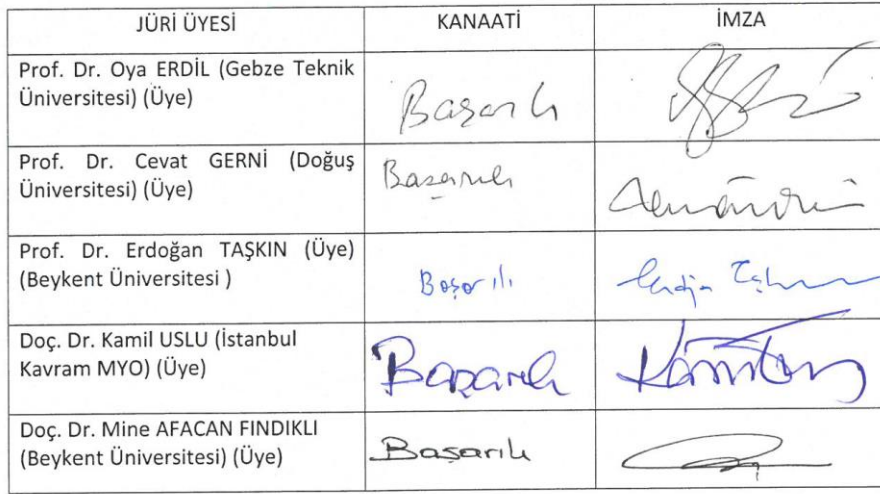 JÜRİ ÜYESİ KANAATİ İMZA
Prof. Dr. Oya ERDİL (Gebze Teknik
Üniversitesi) (Üye)
Başarılı
Prof. Dr. Cevat GERNİ (Doğuş
Üniversitesi) (Üye)
Başarılı
Prof. Dr. Erdoğan TAŞKIN (Üye)
(Beykent Üniversitesi )
Başarılı
Doç. Dr. Kamil USLU (İstanbul
Kavram MYO) (Üye)
Başarılı
Doç. Dr. Mine AFACAN FINDIKLI
(Beykent Üniversitesi) (Üye)
Başarılı